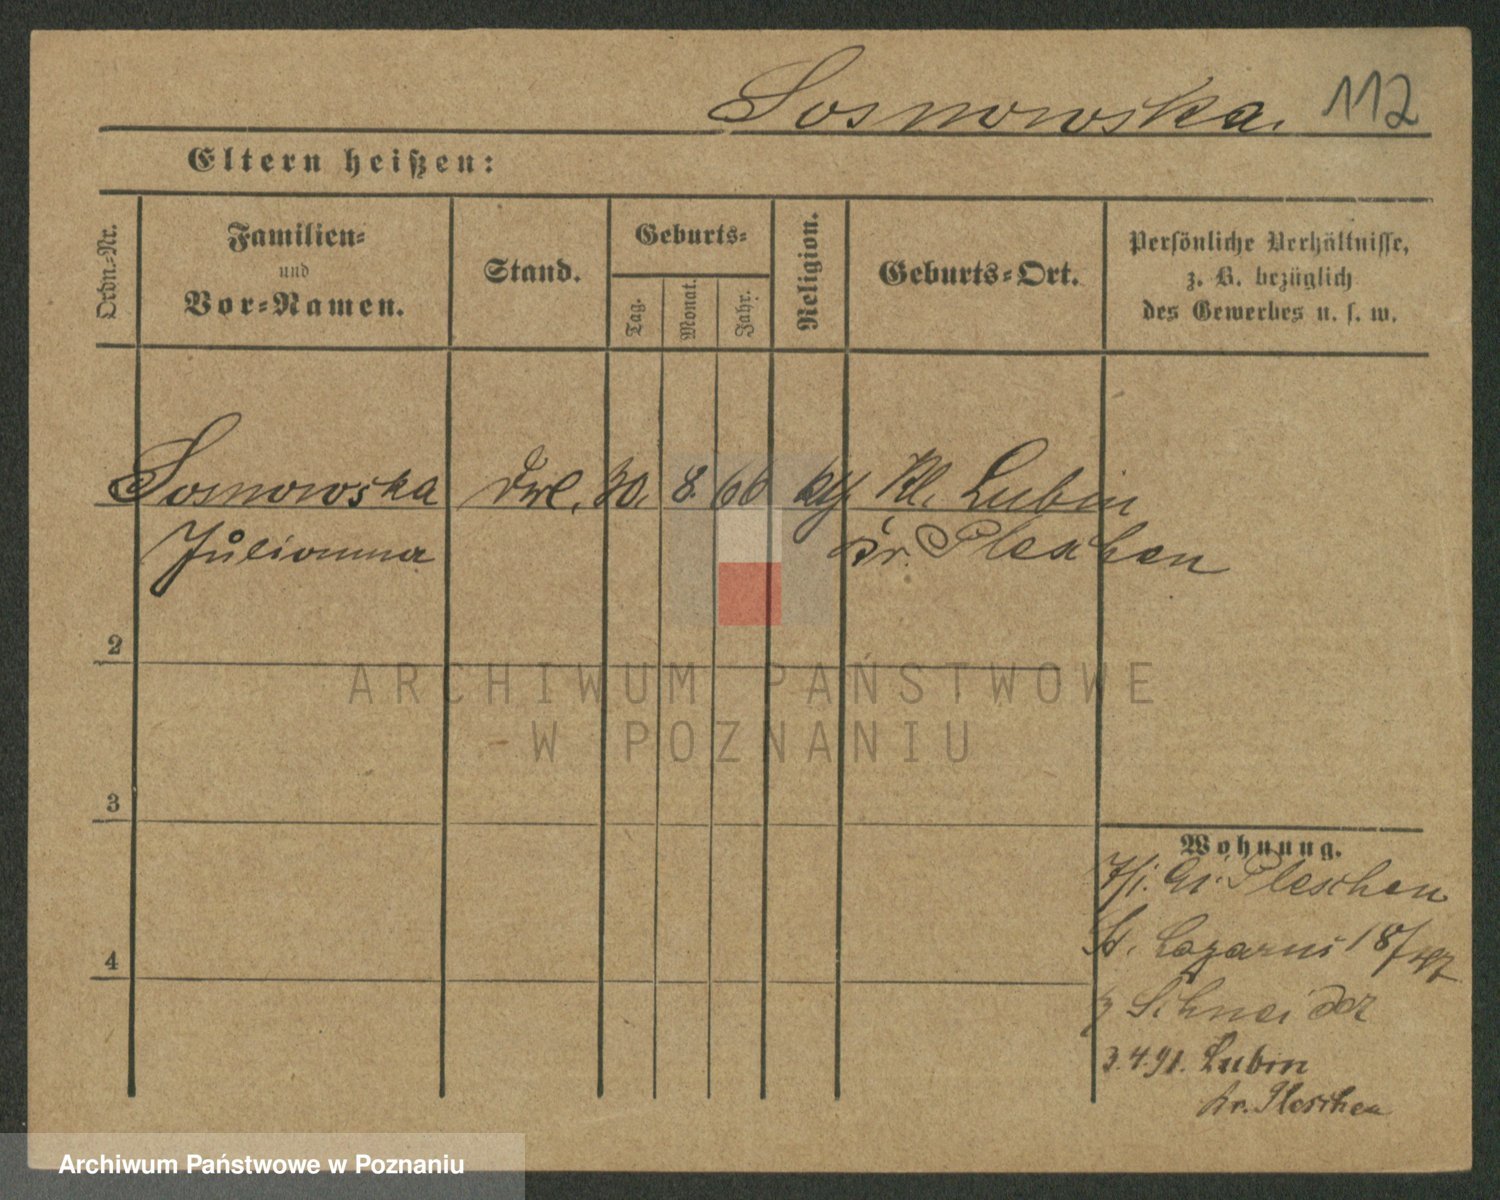 Sosnowska 112
Eltern heißen:
Ordn.-Nr.
Familien-
und
Vor-Namen.
Stand.
Geburts-
Tag.
Monat.
Jahr.
Religion.
Geburts-Ort.
Persönliche Verhältnisse,
z. B. bezüglich
des Gewerbes u. s. w.
Sosnowska 30. 8. 66 Kl. Lubin
Julianna Kr. Pleschen
2
3
4
Wohnung.
Pleschen
St. Lazarus 18
Schneider
3.4.91. Lubin
Kr. Pleschen
ARCHIWUM PAŃSTWOWE
W POZNANIU
Archiwum Państwowe w Poznaniu